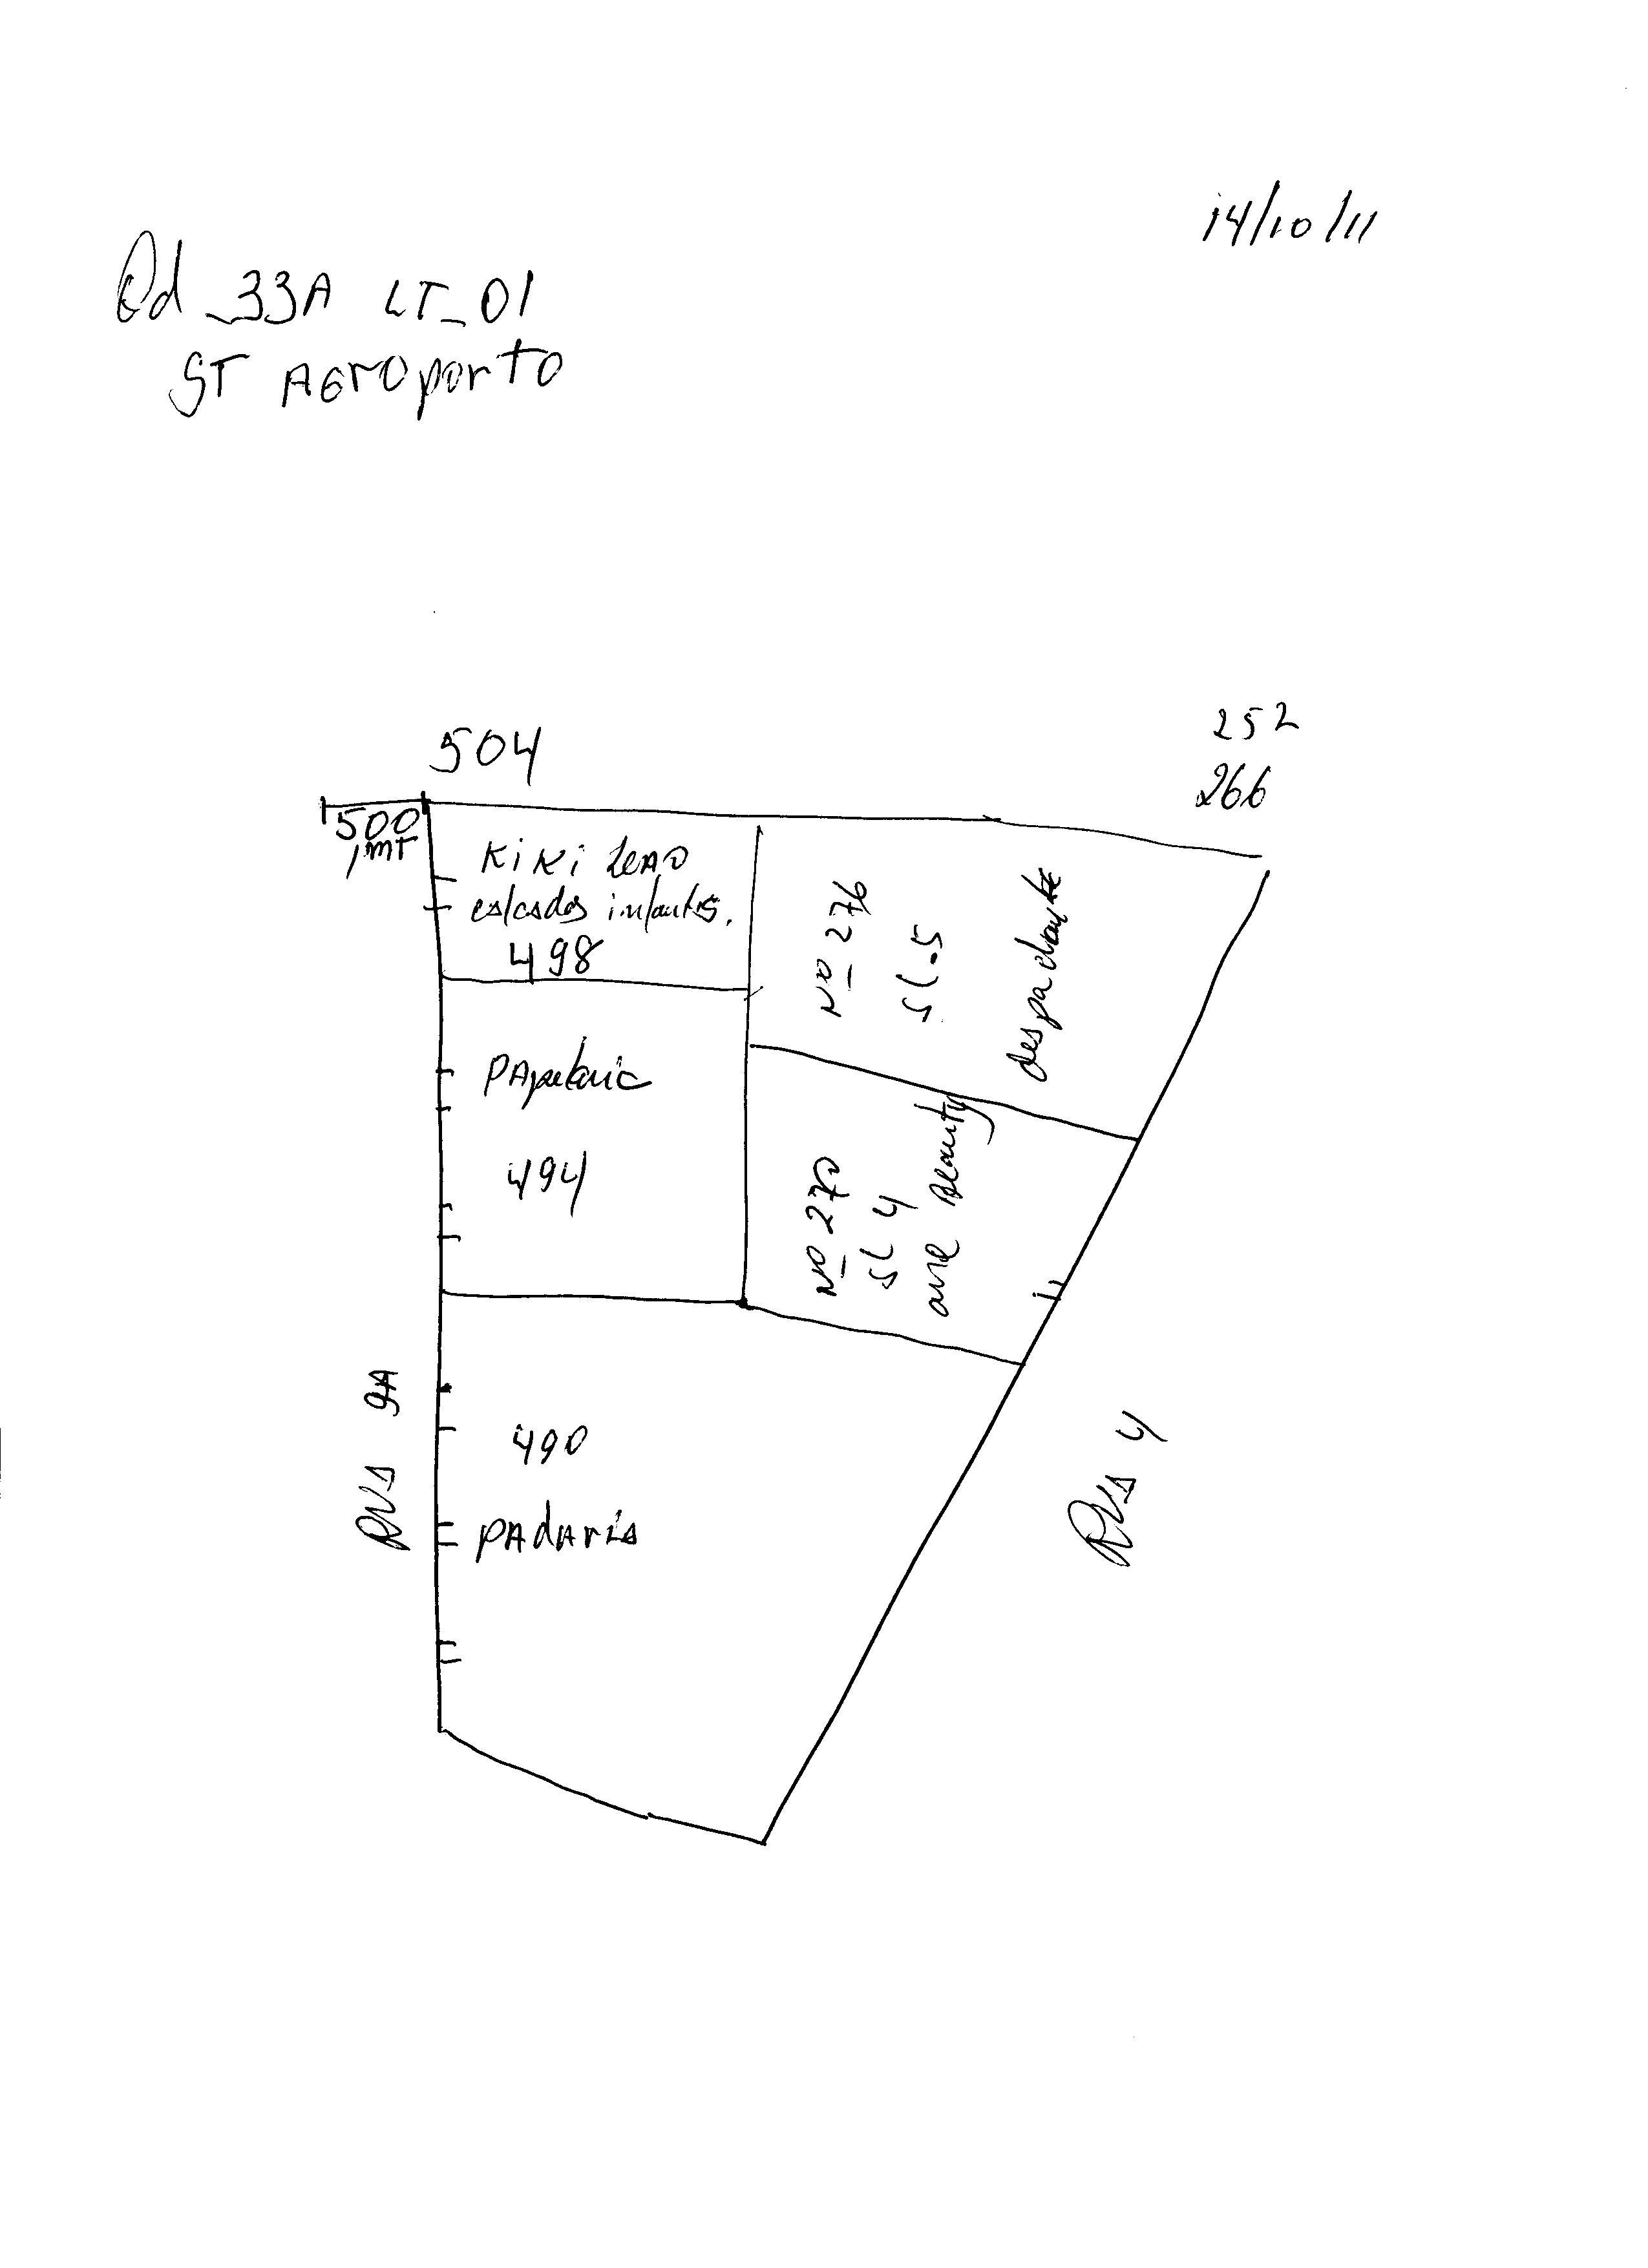 14/10/11
Qd_33A LT_01
ST Aeroporto
252
504
266
500
/mT
Kiki Leão
calcados infantis.
498
No 276
SL.5
despachante
Papelaria
494
No 270
SL 4
Beauty
Rua 9A
490
padaria
Rua 4